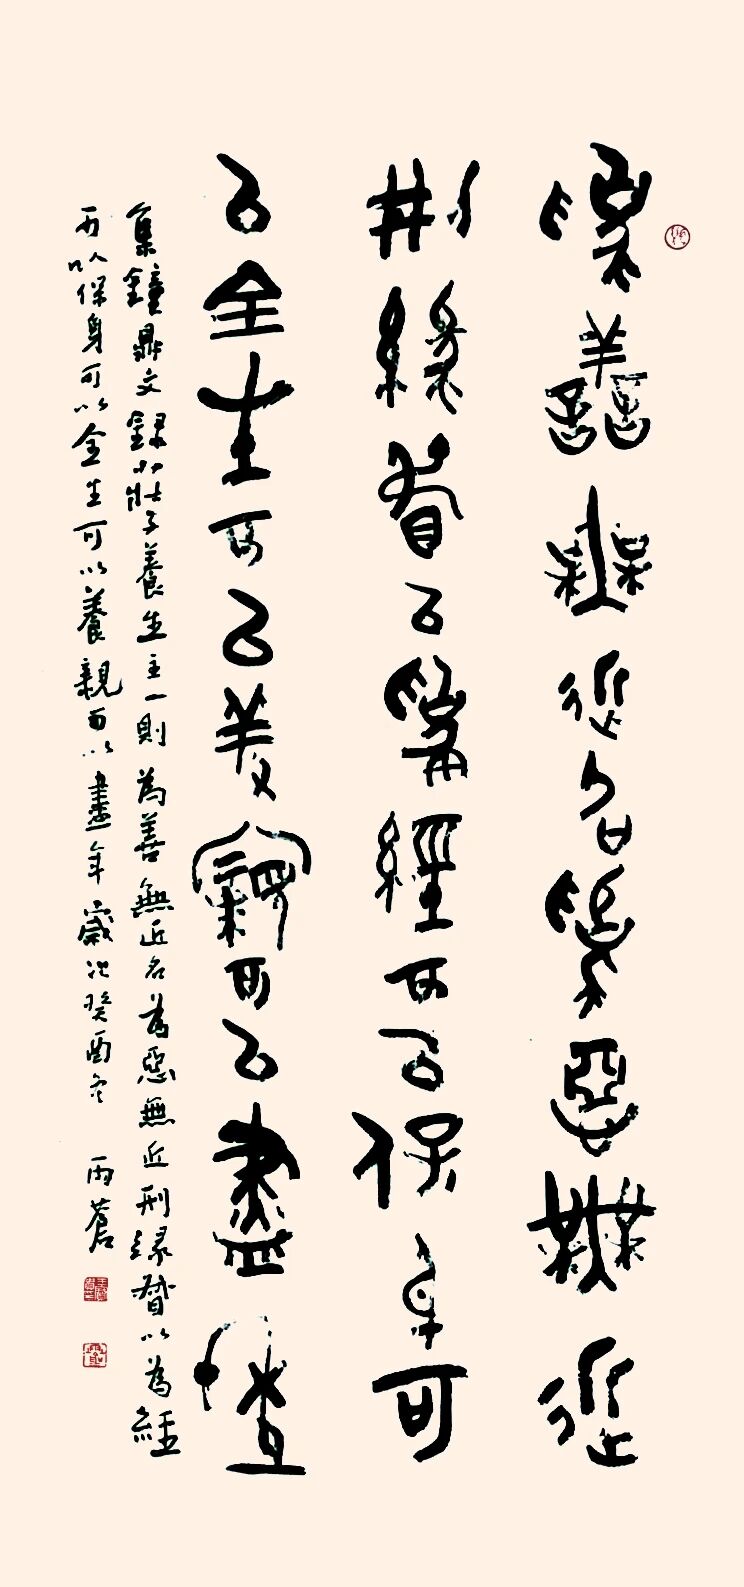 為善無近名為惡無近
刑緣督以為經可以保身可
以全生可以養親可以盡年
集鐘鼎文錄莊子養生主一則為善無近名為惡無近刑緣督以為經
可以保身可以全生可以養親可以盡年歲次癸酉冬 雨蒼